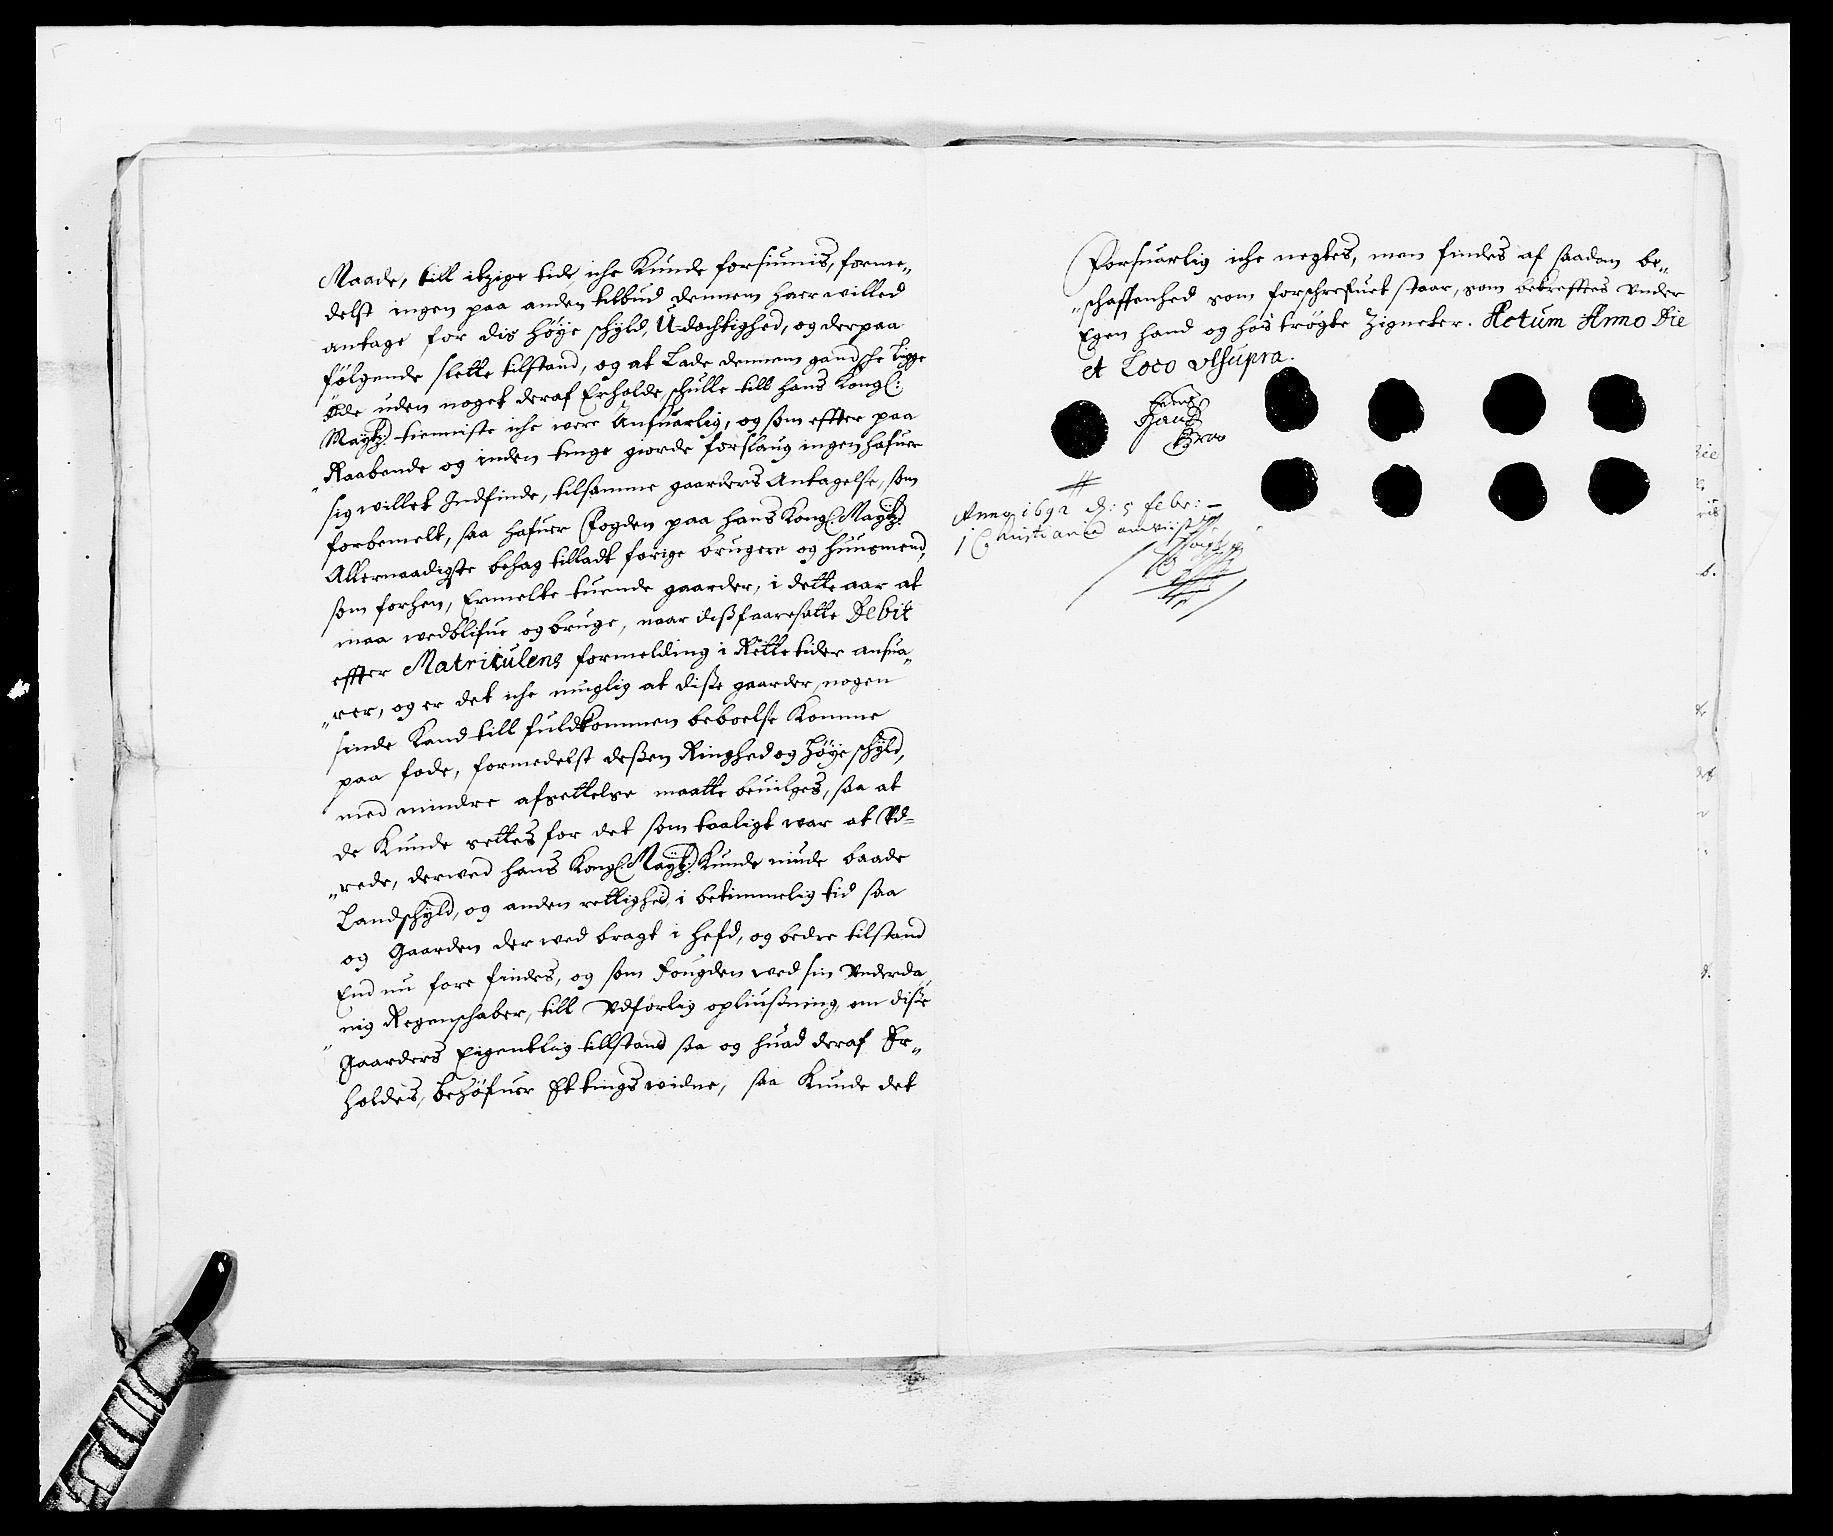 Maade, till itzige tide iche Kunde forsiunis, forme„
delst ingen paa anden tilbud dennem haer willed
antage for dis høye schyld, U-dochtighed, og derpaa
følgende slette tilstand, og at Lade dennem gandsche Ligge
øde uden noget deraf Erholde schulle till hans Kongl:
Maytz: tienniste iche were Ansuarlig, og som effter paa
„Raabende og inden tinge giorde forslaug ingen hafuer
sig willet Indfinde, tilsamme gaarders Antagelse, som
forbemelt, saa hafuer Fogden paa hans Kongl: Maytz:
Allernaadigste behag tilladt forige brugere og huusmend,
som forhen, Ermelte tuende gaarder, i dette aar at
maa wedblifue og bruge, naar disz faaresatte Debit
effter Matriculens formelding i Rette tider ansua„
„rer, og er det iche muglig at disze gaarder, nogen
sinde Kand till fuldkommen beboelse Komme
paa fode, formedelst deszen Ringhed og Høye schyld,
med mindre afsettelse maatte beuilges, saa at
de Kunde settes for det som taaligt war at Vd=
„rede, derwed hans Kongl: Maytz: Kunde niude baade
Landschyld, og anden rettighed i betimmelig tid saa
og Gaarden der wed bragt i hefd, og bedre tilstand
End nu fore findes, og som Fougden wed sin Vnderda„
nig Regenschaber, till Vdførlig opliuszning, om disze
„Gaarders Eigentlig tillstand saa og huad deraf Er„
holdes, behøfuer Et tings widne, saa Kunde det
Forsuarlig iche negtes, men findes af saadan be„
„schaffenhed som forschrefuet staar, som bekrefftes Vnder
Egen hand og hos trøgte Zigneter. Actum Anno Die
et Loco Vtsupra.
Anno 1692 d: 5 Febr:
i Christiania anviist